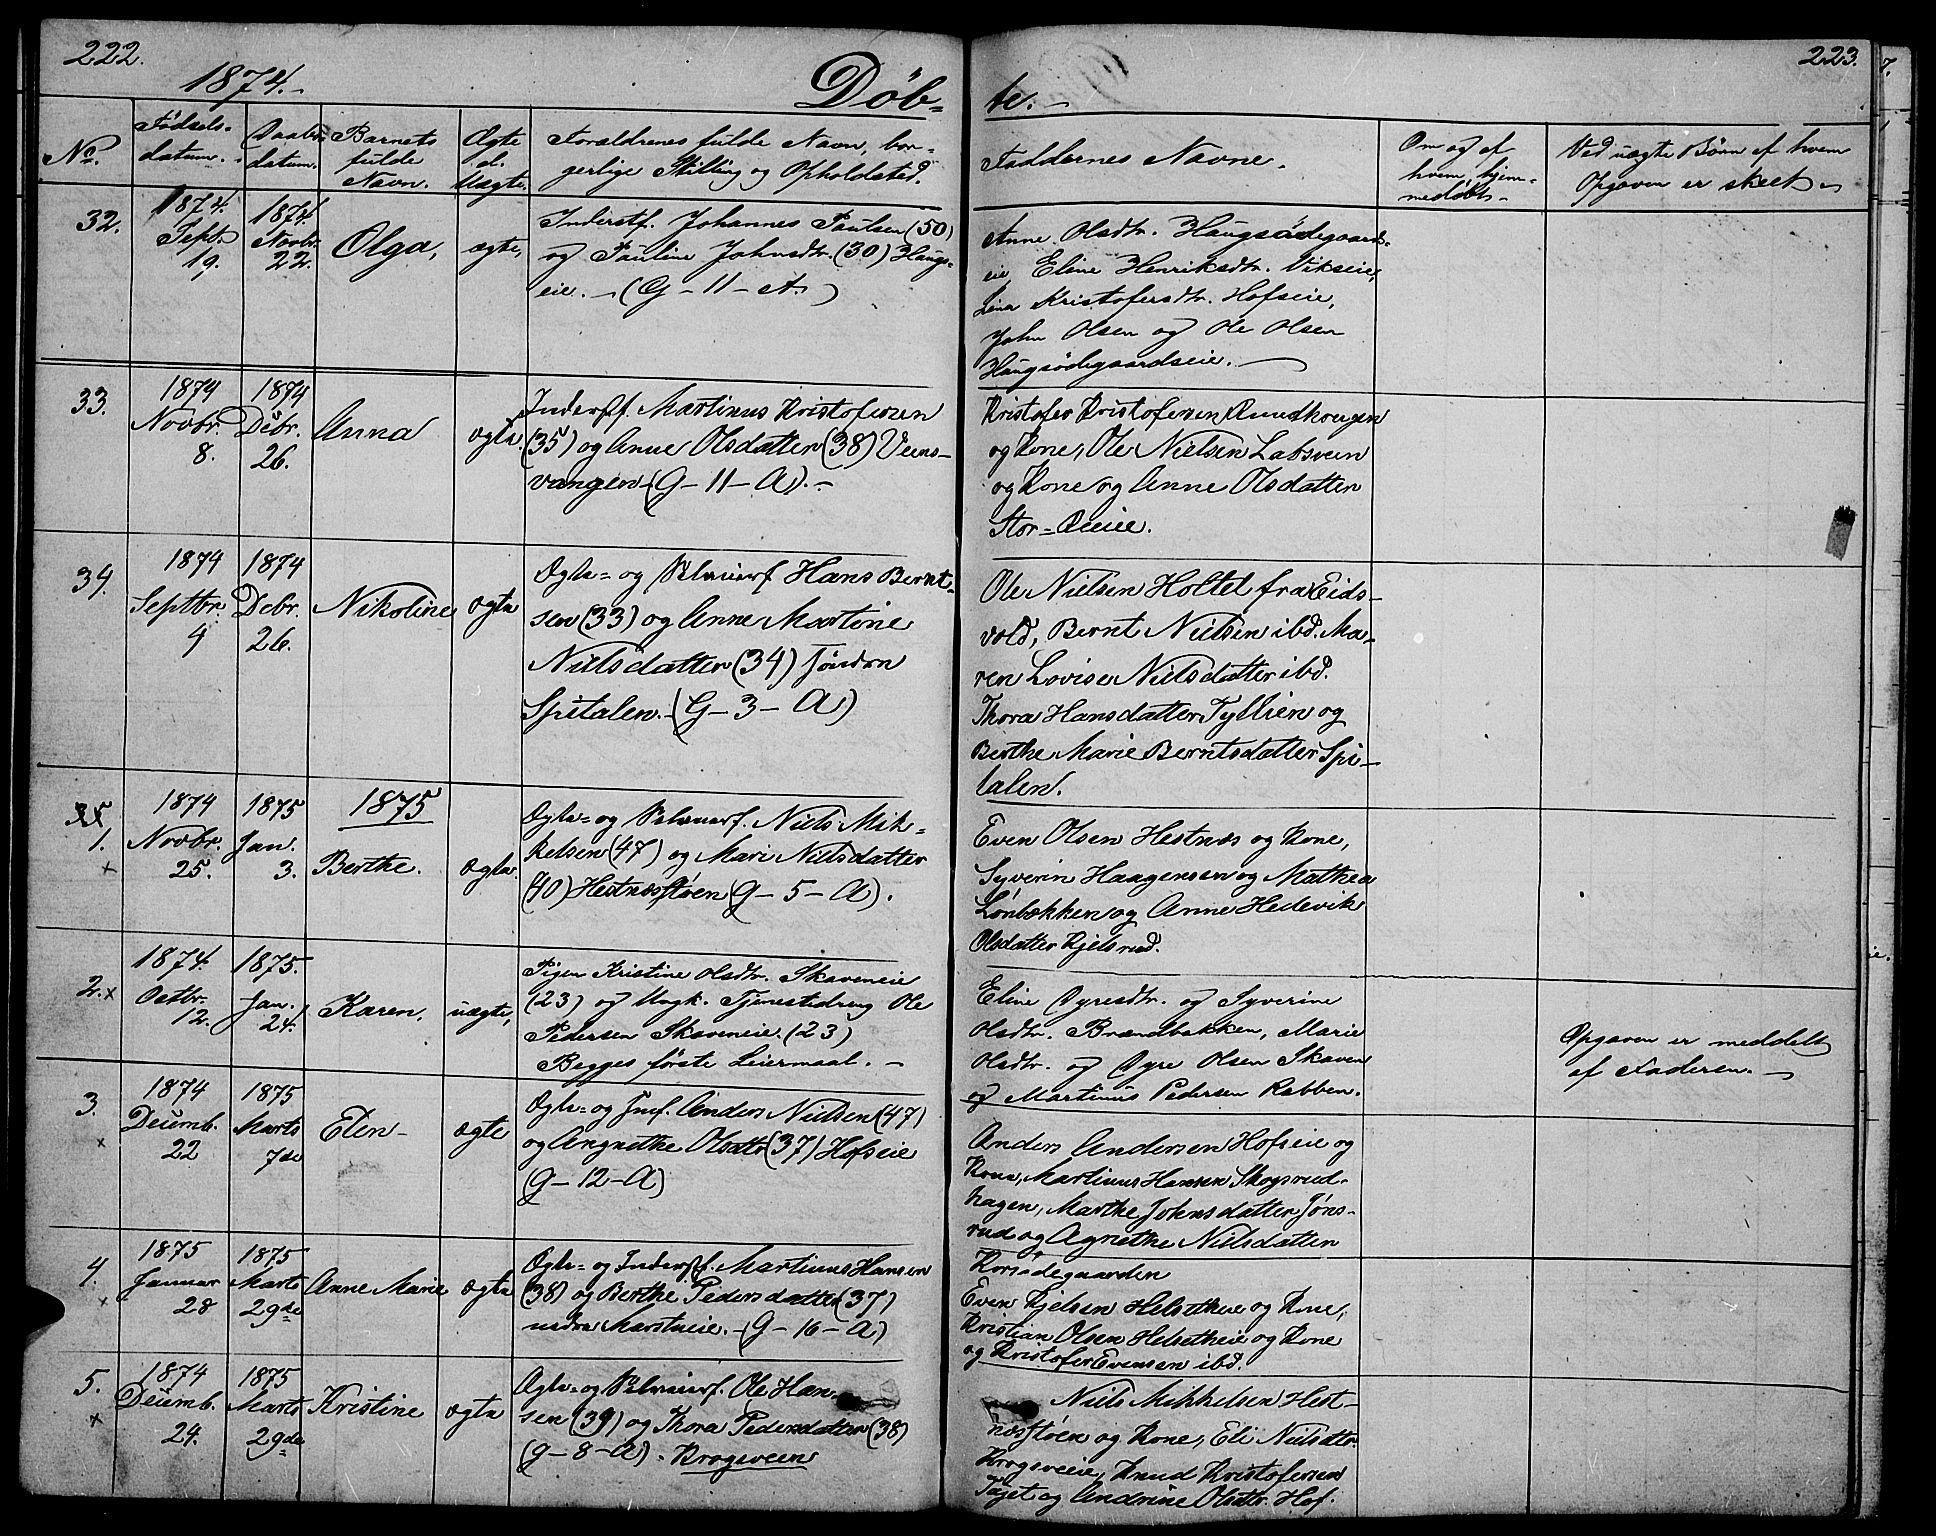 222.
1874.-
Döb=
No.
Födsels-
datum.
Daabs
datum.
Barnets
fulde
Navn.
Ægte
el.
Uægte.
Forældrenes fulde Navn, bor-
gerlige Stilling og Opholdsted.
32.
1874.
Sept.
19.
1874.
Novbr.
22.
Olga,
ægte,
Inderstf. Johannes Paulsen (50)
og Pauline Johnsdtr. (30) Haugs-
eie. - (G - 11 - A.)
33.
1874
Novbr.
8.
1874
Debr.
26.
Anna
ægte.
Inderstf. Martinus Kristofersen
(35) og Anne Olsdatter (38) Veens-
vangen - (G - 11 - A). -
34.
1874
Septbr.
4
1874
Debr.
26.
Nikoline
ægte
Ægte= og Hans Bernt-
sen (33) og Anne Martine
Nielsdatter (34) søndre
Spitalen. - (G - 3 - A)
1.
1874
Novbr.
25.
1875
Jan.
3.
1875
Berthe.
ægte.
Ægte= og Niels Mik-
kelsen (47) og Mari Nielsdatter
(40) Hestnæsstøen (G - 5 - A).
2. x
1874.
Octbr.
12.
1875.
Jan.
24.
Karen.
uægte,
Pigen Kristine Olsdtr. Skaveneie
(23) og Ungk. Tjenestedreng Ole
Pedersen Skaveneie. (23)
Begges første Leiermaal. -
3.
x
1874
Decemb.
22
1875
Marts
7de
Elen -
ægte
Ægte= og Anders Nielsen (47)
og Angnethe Olsdttr (37) Hofseie
(G - 12 - A)
4.
x
1875
Januar
28
1875
Marts
29de
Anne Marie
ægte
Ægte= og Inderstf. Martinus Hansen
(38) og Berthe Pedersdatter (37)
nedre - (G - 16 - A)
5.
x
1874
Decemb.
24.
1875
Marts
29de
Kristine
ægte
Ægte= og Ole Han-
sen (39) og Thora Pedersdatter (38)
(G - 8 - A). Krogsveen
223.
te. -
Faddernes Navne.
Om og af
hvem hjem-
medøbt. -
Ved uægte Børn af hvem
Opgaven er skeet -
Anne Olsdtr. Haugsødegaards-
eie Eline Henriksdtr. Vikseie,
Lina Kristofersdtr. Hofseie,
John Olsen og Ole Olsen
Haugsødegaardseie. -
Kristofer Kristofersen Rundhougen
og Kone, Ole Nielsen Labsveen
og Kone og Anne Olsdatter
Stor=Reeie.
Ole Nielsen Holtet fra Eids-
vold, Bernt Nielsen ibd. Ma-
ren Lovise Nielsdatter ibd.
Thora Hansdatter Tyllien og
Berthe Marie Berntsdatter Spi-
talen.
Even Olsen Hestnæs og Kone,
Syverin Haagensen og Mathea
Lønbækken og Anne Hedevik
Olsdatter Kjelsrud.
Eline Gyresdtr. og Syverine
Olsdtr. Brændbakken, Marie
Olsdtr. og Gyre Olsen Skaven
og Martinus Pedersen Rabben.
Opgaven er meddelt
af Faderen. -
Anders Andersen Hofseie og
Kone, Martinus Hansen Skogsrud-
hagen, Marthe Johnsdatter Jøns-
rud og Agnethe Nielsdatter
Korsødegaarden
Even Kjelsen Helsetheie og Kone,
Kristian Olsen Helsetheie og Kone
og Kristofer Evensen ibd.
Niels Mikkelsen Hest-
næsstøen og Kone, Eli Nielsdtr.
Krogsveeie, Knud Kristofersen
og Andrine Olsdtr. Hof.